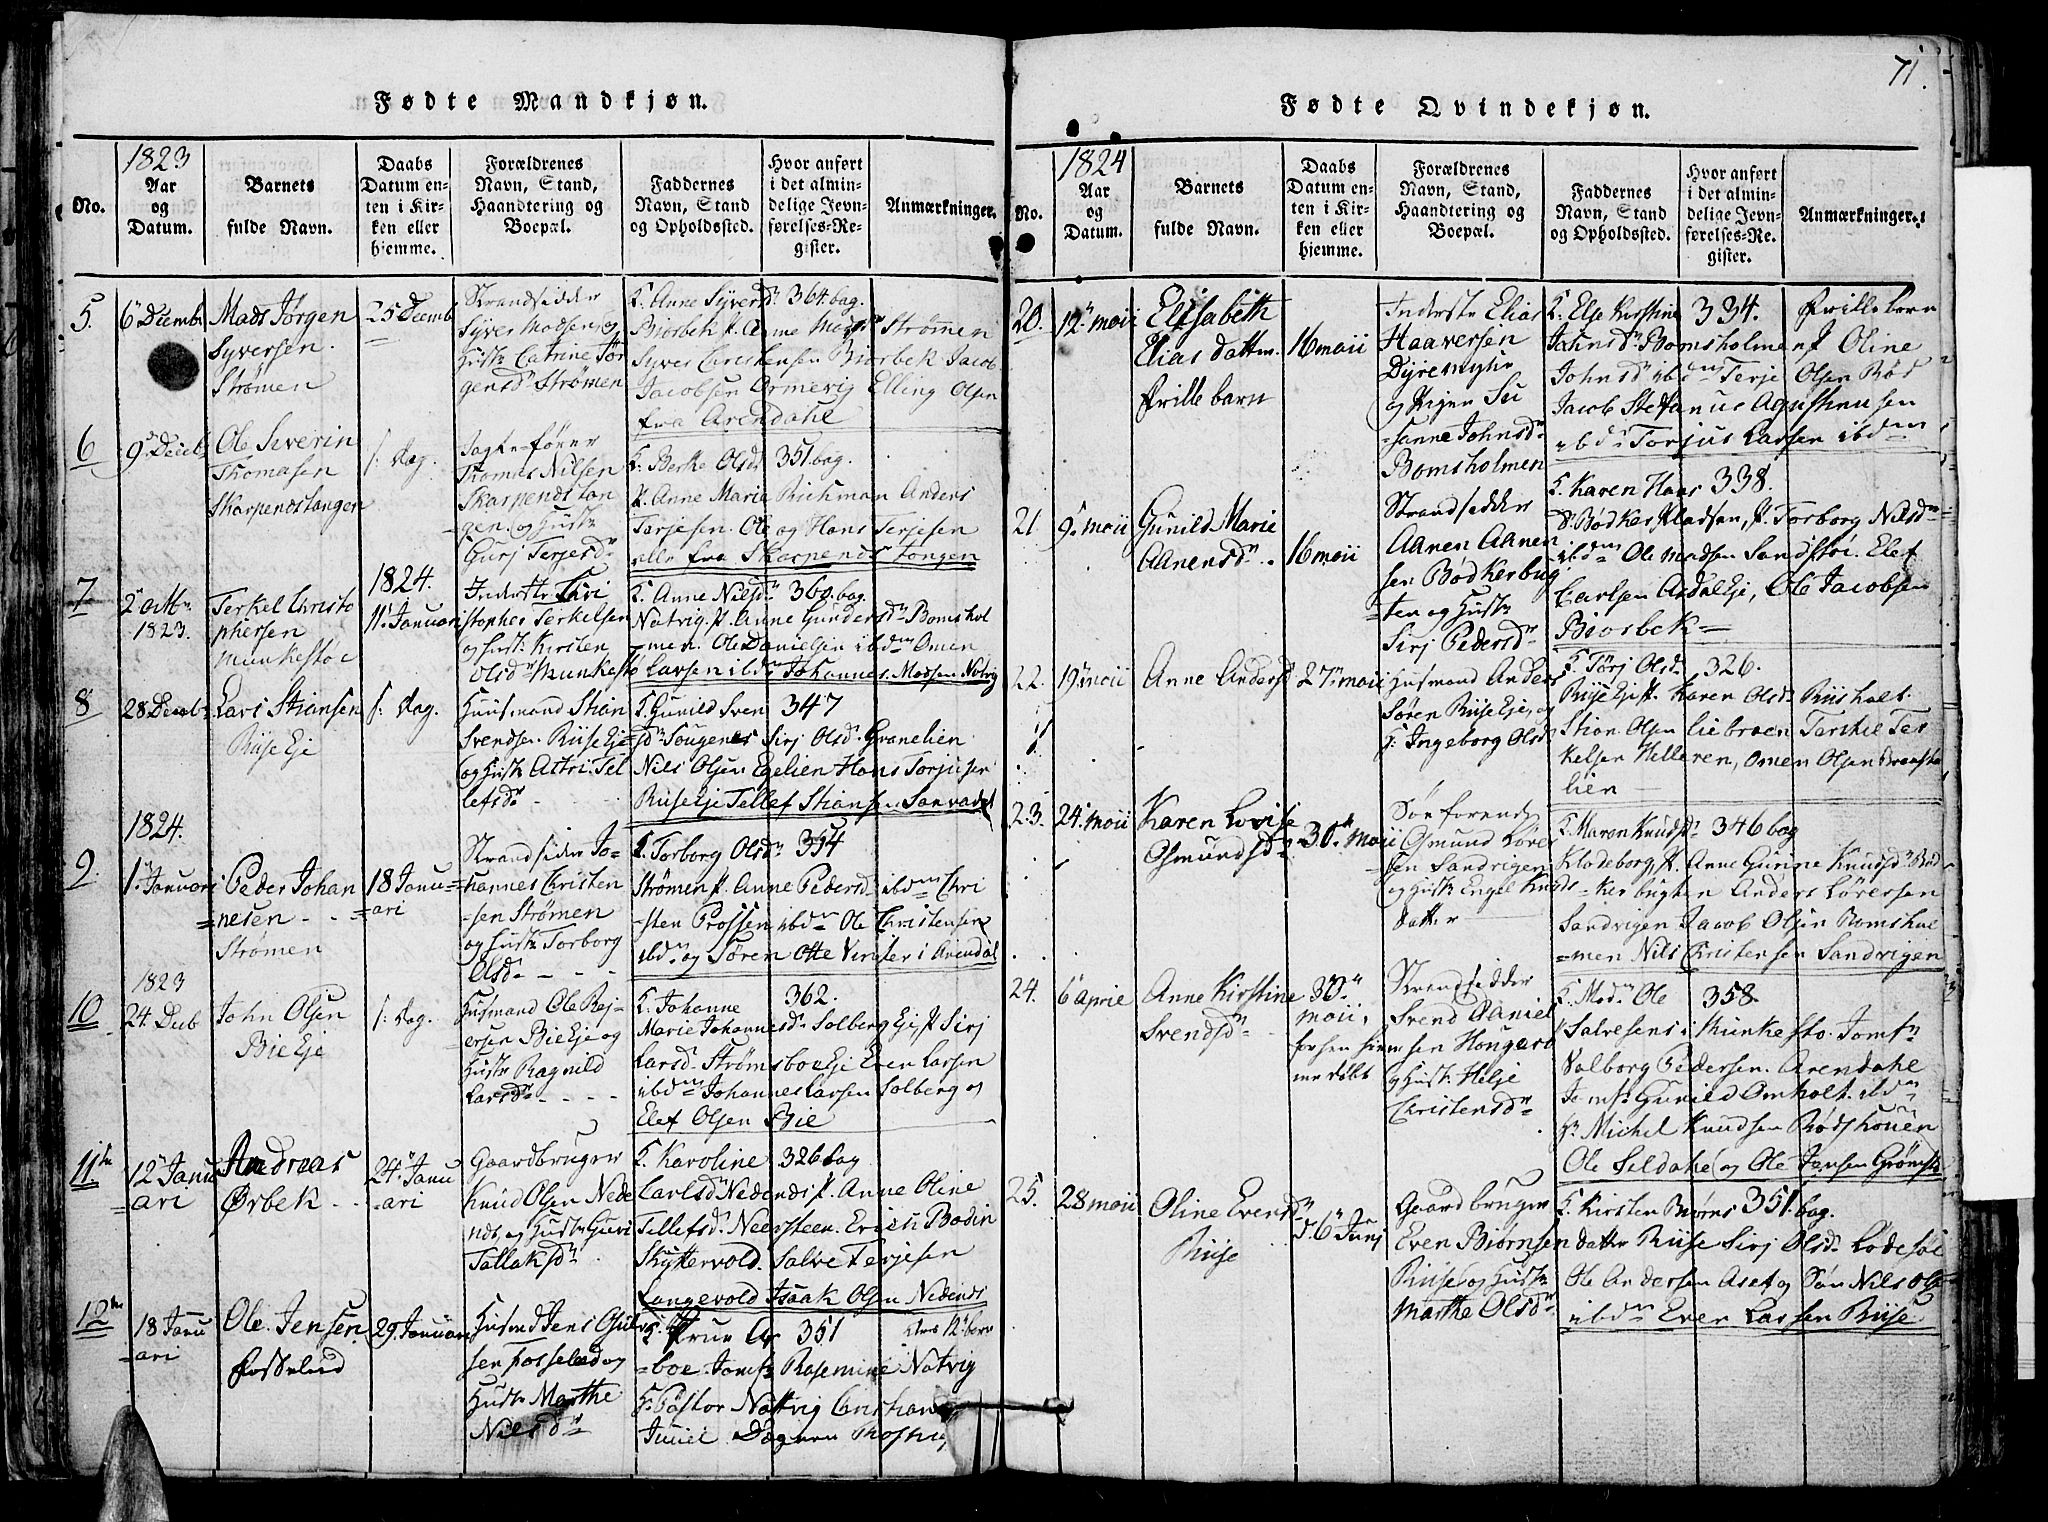 Fødte Mandkjøn.
No.
1823
Aar og Datum.
Barnets fulde Navn.
Daabs Datum enten i Kirken eller hjemme.
Forældrenes Navn, Stand, Haandtering og Boepæl.
Faddernes Navn, Stand og Opholdssted.
Hvor anført i det almindelige Jevnførelses-Register.
Anmærkninger.
5.
6 Decemb
Mads Jørgen
Syversen
Strømen
25 Decemb
Strandsidder
Syver Madsen og
Hust: Catrine Jør
gensd: Strømen
F. Anne Syversd: 364. bag.
Biorbek J. Anne Madsd: Strømen
Syver Christensen Biorbek Jacob
Jacobsen Ormevig Elling Olsen
fra Arendahl
6
9 Decb
Ole Severin
Thomasen
Skarpendstangen
s: dag.
Jagtefører
Thomas Nilsen
Skarpendstan
gen og Hustr
Gurj Terjesd
F: Berthe Olsd 351. bag.
J. Anne Maria Richman Anders
Tarjesen Ole og Hans Terjesen
alle fra Skarpends Tangen
7
2 Octb
1823.
Terkel Christo
phersen
Munkestøe
1824.
11 Januari
Inderste Chri
stopher Terkelsen
og Hust: Kirsten
Olsd Munkestø
F. Anne Nilsd 360. bag.
Natvig. J. Anne Gundersd Bomshol
men. Ole Danielsen ibdm Omen
Larsen ibdm Johannes Madsen Natvig
8
28 Decb
Lars Stiansen
Riise Eje
s: dag.
Huusmand Stian
Svendsen Riise Eje
og Hustr Astri Tel
lefsd
F. Gunild Sven 347
sd Sougenes Sirj Olsd. Granelien
Nils Olsen Egelien Hans Torjusen
Riise Eje Tellef Stiansen
1824.
9.
1 Januari
Peder Johan
nesen
Strømen
18 Janu
ari
Strandsider Jo
hannes Christen
sen Strømen
og Hustr Torborg
Olsd
F. Torborg Olsd 354
Strømen J. Anne Pedersd ibdm Chri
sten Prossen ibdm Ole Christensen
ibdm og Søren Otte Vinter i Arendal
1823
10
24 Decb
John Olsen
Bie Eje
s: dag.
Husmand Ole Rej
ersen Bie Eje og
Hustr Ragnild
Larsd
F. Johanne 362.
Marie Johannesd Solberg Eje J Sirj
Larsd Strømsboe Eje Even Larsen
ibdm Johannes Larsen Solberg og
Elef Olsen Bie
11te
12 Janu
ari
Andreas
Ørbek
24 Janu
ari
Gaardbruger
Knud Olsen Nede
nds, og Hustr Guri
Tallaksd
F. Karoline 326 bag
Carlsd Nedends J. Anne Oline
Tellefsd Neersteen Erich Bodin
Skyttervold Salve Terjesen
Langevold Isaak Olsen Nedends
12te
18 Janu
ari
Ole Jensen
Fosselied
29 Januari
Husmd Jens
sen Fosselied og
Hustr Marthe
Nilsd
F. Frue 351
boe Jomfr Rasemine Natvig
H. Pastor Natvig
Fødte Qvindekjøn.
71.
No.
1824
Aar og Datum.
Barnets fulde Navn.
Daabs Datum enten i Kirken eller hjemme.
Forældrenes Navn, Stand, Haandtering og Boepæl.
Faddernes Navn, Stand og Opholdssted.
Hvor anført i det almindelige Jevnførelses-Register.
Anmærkninger.
20.
12 maii
Elisabeth
Elias datter
Frille barn
16 maii
Inderste Elias
Haaversen
Dyremyhr
og Pigen Su
sanne Johnsd
Bomsholmen
F. Else Kirstine 334. Frille barn
Johnsd Bomsholmen J Oline
Johnsd ibdm Terje Olsen Rød
Jacob Steffanus Agustinusen
ibd Torjus Larsen ibdm
21.
9 maii
Gunild Marie
Aanensd
16 maii
Strandsedder
Aanen Aanen
sen Bødkerbug
ten og Hustr
Sirj Pedersd
F. Karen Hans 338.
d Bødker Pladsen, J. Torborg Nilsd
ibdm Ole Madsen Sandstøi. Elef
Carlsen Ardal Eje, Ole Jacobsen
Biorbek
22.
19 maii
Anne Andersd
27 maii
Husmand Anders
Søren Riise Eje, og
H. Ingeborg Olsd
F Tørj Olsd 326.
Riise Eje J. Karen Olsd Riisholt
Stian Olsen liebroen Terkel Ter
kelsen Helleren, Omen Olsen
lien
23.
24 maii
Karen Lovise
Osmundsd
30 maii
Søeforende
Osmund Lører
sen Sandvigen
og Hustr Engel Knuds
datter
F. Maren Knudsd 346 bag
Klodeborg J. Anne Gurine Knudsd Bød
kerbugten Anders Lørersen
Sandvigen Jacob Olsen Bomshol
men Nils Christensen Sandvigen
24.
6 Aprie
Anne Kirstine
Svendsd
30
maii,
forhen hiem
me døbt
Strandsedder
Svend Daniel
sen Hougaro
og Hustr Helje
Christensd
F. Mad. Ole 358.
Salvesens i Munkestø. Jomfr
Valborg Pedersen. Arendahl
Jomfr Gunild Omholt ibdm
Hr Michel Knudsen Rødshouen
Ole Seldahl og Ole Jensen Grømstd
25.
28 maii
Oline Evensd
Riise
d. 6 Junj
Gaardbruger
Even Biørnsen
Riise og Hustr
Marthe Olsd
F. Kirsten Biørns 351. bag.
datter Riise Sirj Olsd Lodesøl
Ole Andersen Aset og Søn Nils Ols
ibdm Even Larsen Riise